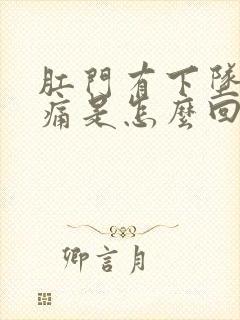 肛門有下墜
痛是怎麼回
卿言月